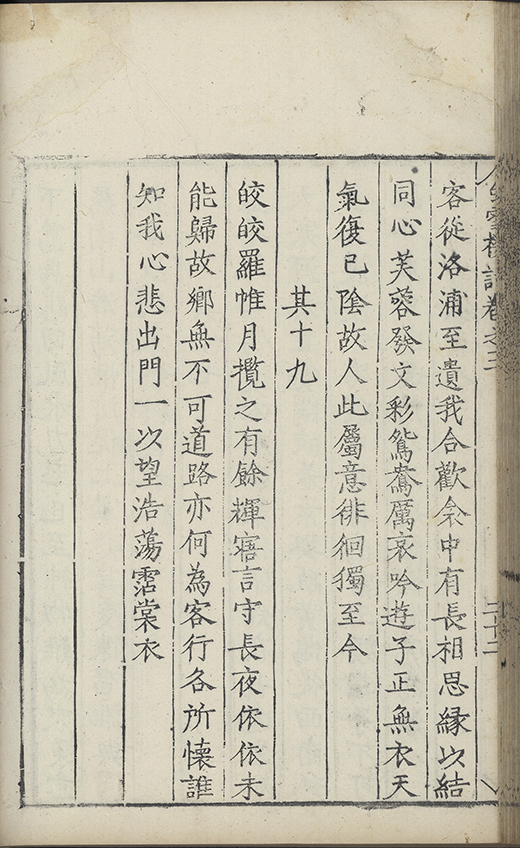 詩卷之三
二十二
客從洛浦至遺我合歡衾中有長相思緣以結
同心芙蓉發文彩鴛鴦厲哀吟遊子正無衣天
氣復已陰故人此屬意徘徊獨至今
其十九
皎皎羅帷月攬之有餘輝寤言守長夜依依未
能歸故鄉無不可道路亦何為客行各所懷誰
知我心悲出門一以望浩蕩霑棠衣